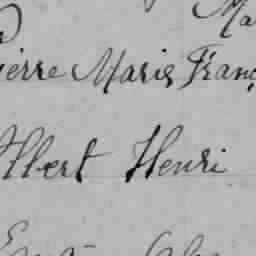 Ma
ierre Marie Franç
Albert Henri